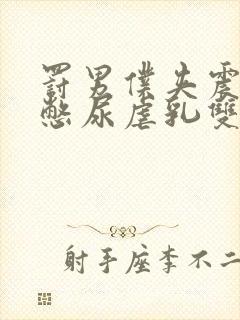 罰男僕失震
憋尿虐乳雙
射手座李不二